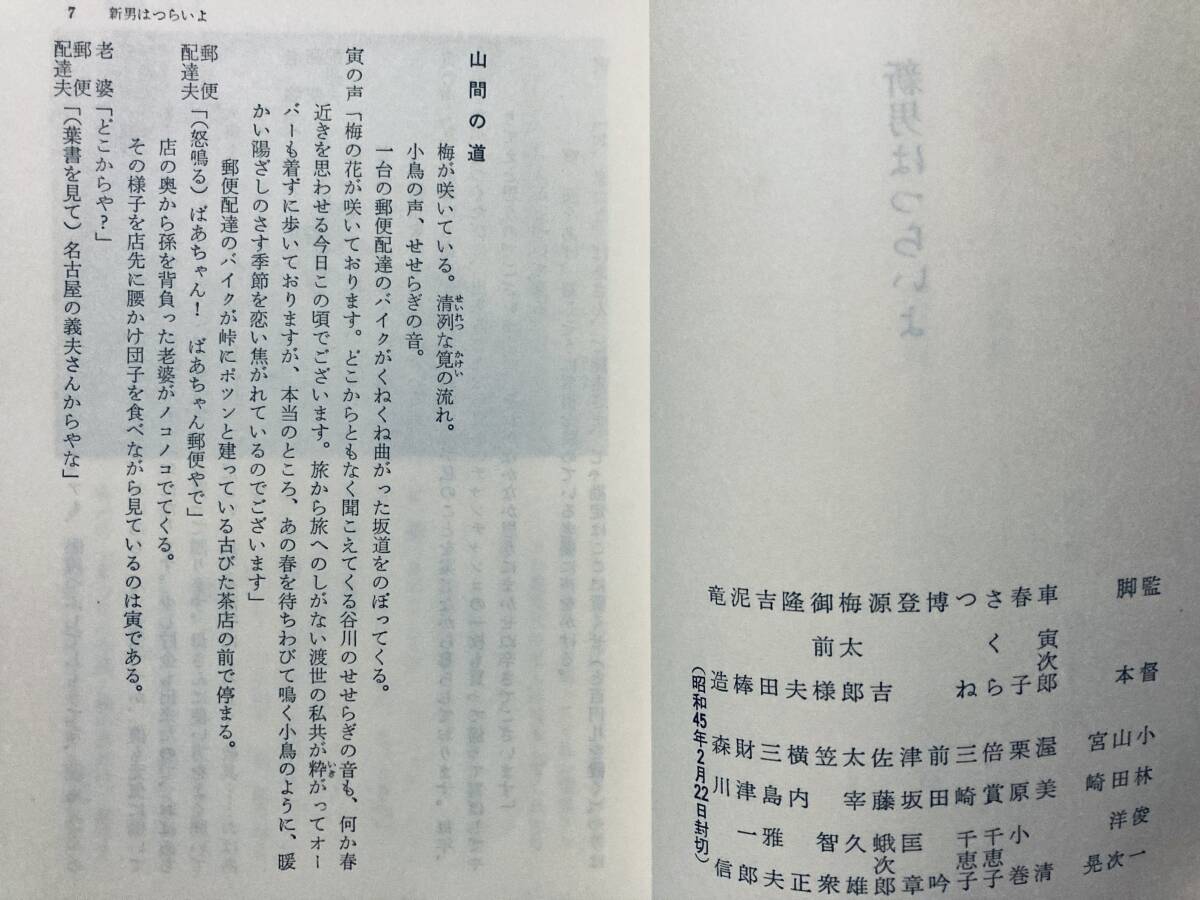 監督　小林俊一
脚本　山田洋次
宮崎晃
車寅次郎　渥美清
春子　栗原小巻
さくら　倍賞千恵子
つね　三崎千恵子
博　前田吟
登　津坂匡章
源吉　佐藤蛾次郎
梅太郎　太宰久雄
御前様　笠智衆
隆夫　横内正
吉田　三島雅夫
泥棒　財津一郎
竜造　森川信
(昭和45年2月22日封切)
7　新男はつらいよ
山間の道
梅が咲いている。清冽な筧の流れ。
せいれつ　かけい
小鳥の声、せせらぎの音。
一台の郵便配達のバイクがくねくね曲がった坂道をのぼってくる。
寅の声「梅の花が咲いております。どこからともなく聞こえてくる谷川のせせらぎの音も、何か春
近きを思わせる今日この頃でございます。旅から旅へのしがない渡世の私共が粋がってオー
いき
バーも着ずに歩いておりますが、本当のところ、あの春を待ちわびて鳴く小鳥のように、暖
かい陽ざしのさす季節を恋い焦がれているのでございます」
郵便配達のバイクが峠にポツンと建っている古びた茶店の前で停まる。
郵便配達夫「(怒鳴る)ばあちゃん！　ばあちゃん郵便やで」
店の奥から孫を背負った老婆がノコノコでてくる。
その様子を店先に腰かけ団子を食べながら見ているのは寅である。
老婆「どこからや？」
郵便配達夫「(葉書を見て)名古屋の義夫さんからやな」